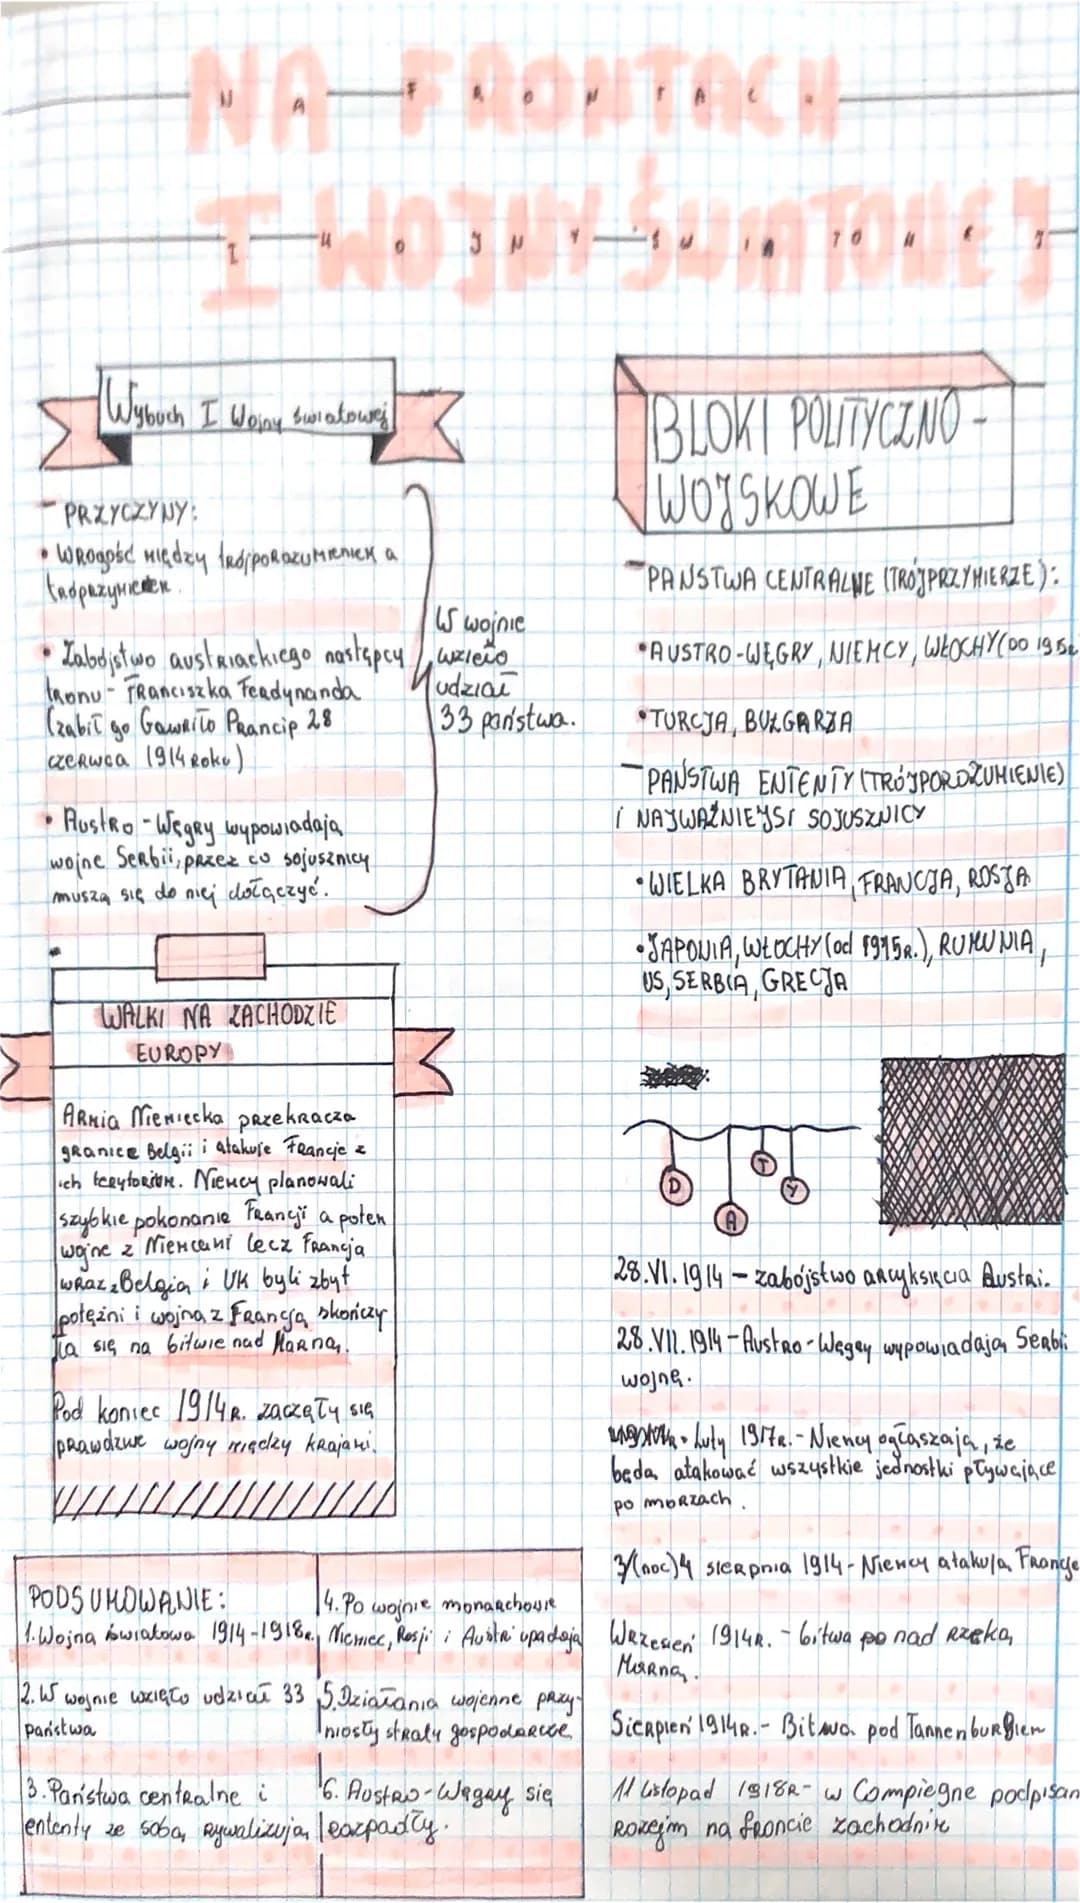 NA FRONTACH
I WOJNY ŚWIATOWEJ
Wybuch I Wojny światowej
- PRZYCZYNY:
• WROGOŚĆ MIĘDZY trójpoROZUMIENIEM a
trójprzymierzem.
• Zabójstwo austriackiego następcy
tronu - Franciszka Ferdynanda
(zabił go Gawriło Prancip 28
czerwca 1914 Roku)
• Austro - Węgry wypowiadają
wojne Serbii, przez co sojusznicy
muszą się do niej dołączyć.
W wojnie
wzięło
udział
33 państwa.
WALKI NA ZACHODZIE
EUROPY
Armia Niemiecka przekracza
granice Belgii i atakuje Francje z
ich terytorium. Niemcy planowali
szybkie pokonanie Francji a potem
wojne z Niemcami lecz Francja
wraz z Belgią i UK byli zbyt
potężni i wojna z Francją skończy
ła się na bitwie nad Marną.
Pod koniec 1914 R. zaczęły się
prawdziwe wojny między krajami.
PODSUMOWANIE:
1. Wojna światowa 1914-1918r.
2. W wojnie wzięło udział 33
państwa
3. Państwa centralne i
ententy ze sobą rywalizują
4. Po wojnie monarchowie
Niemiec, Rosji i Austri upadają
5. Działania wojenne przy-
niosły straty gospodarcze
6. Austro-Węgry się
rozpadły.
BLOKI POLITYCZNO -
WOJSKOWE
- PAŃSTWA CENTRALNE (TRÓJPRZYMIERZE):
• AUSTRO-WĘGRY, NIEMCY, WŁOCHY (DO
• TURCJA, BUŁGARZA
- PAŃSTWA ENTENTY (TRÓJPOROZUMIENIE)
i NAJWAŻNIEJSI SOJUSZNICY
• WIELKA BRYTANIA, FRANCJA, ROSJA
• JAPONIA, WŁOCHY (od 1915R.), RUMUNIA,
US, SERBIA, GRECJA
DATY
28.VI.1914 - zabójstwo arcyksięcia Austri.
28.VII.1914 - Austro-Węgry wypowiadają Serbi
wojnę.
• Luty 1917r. - Niemcy ogłaszają, że
będą atakować wszystkie jednostki pływające
po morzach.
3/(noc)4 sierpnia 1914 - Niemcy atakują Francje
Wrzesień 1914R. - bitwa po nad rzeką
Marną.
Sierpień 1914R. - Bitwa pod Tannenburgiem
11 listopad 1918R - w Compiegne podpisan
rozejm na froncie zachodnim